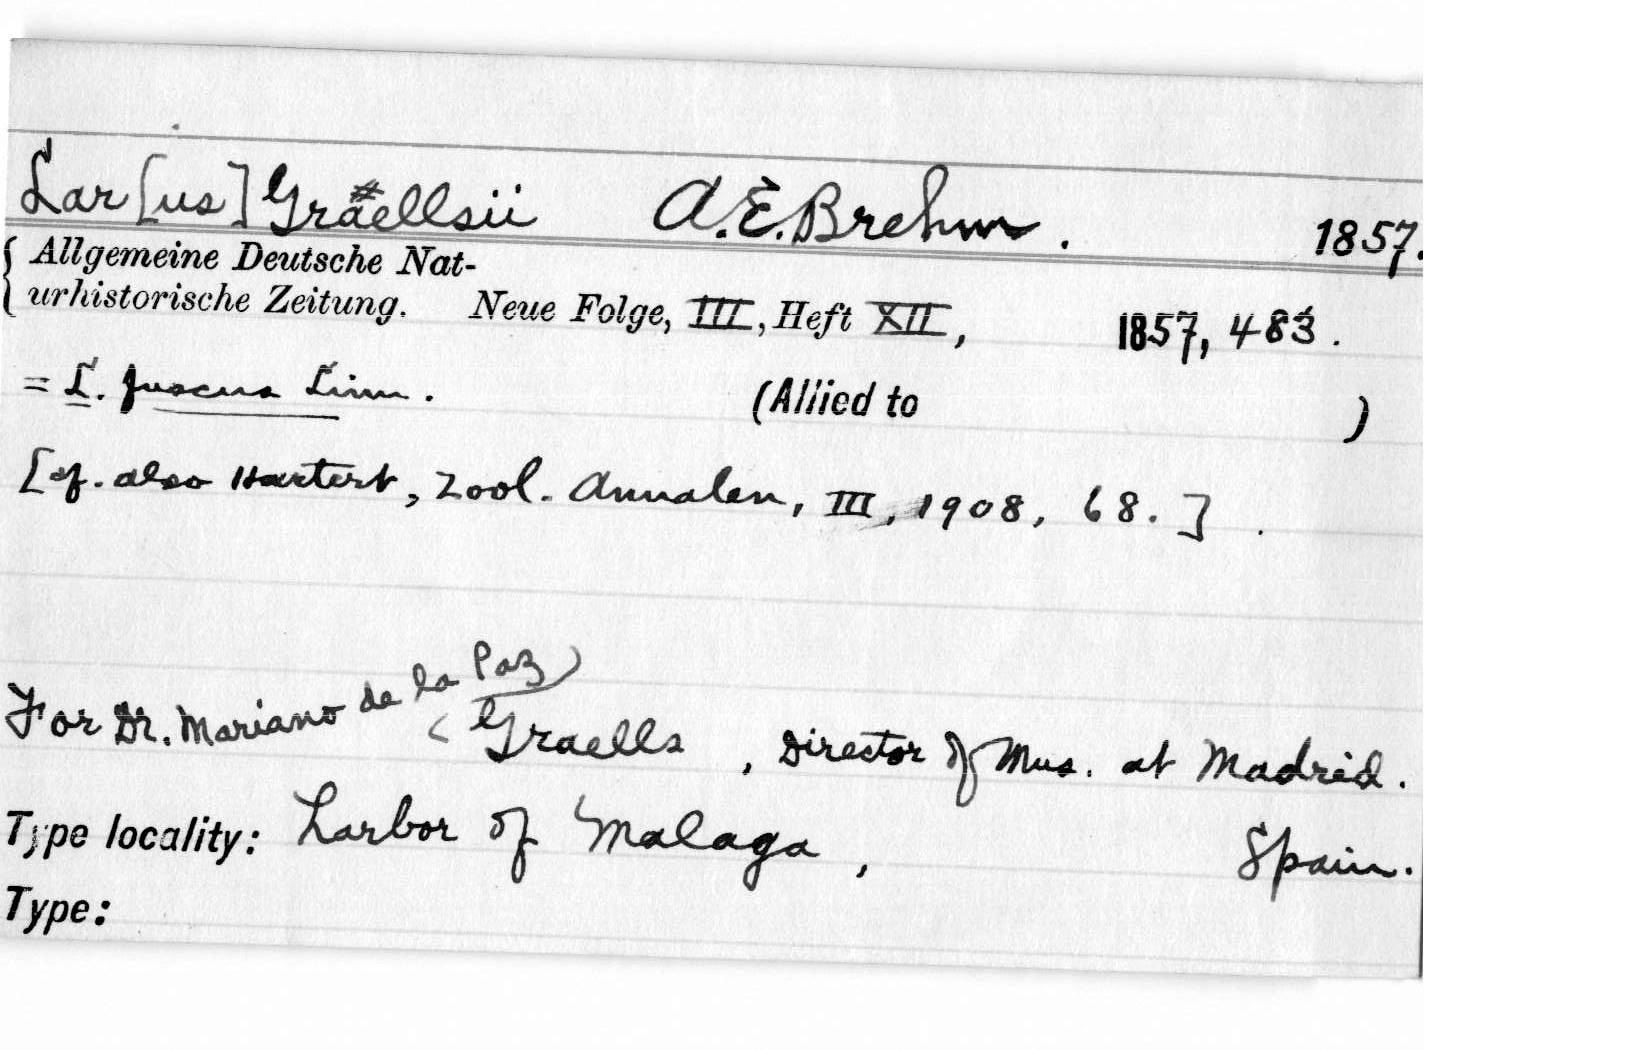 Lar[us] Graellsii A.E. Brehm. 1857.
Allgemeine Deutsche Nat-
urhistorische Zeitung. Neue Folge, III, Heft XII, 1857, 483.
= L. fuscus Linn. (Allied to )
[cf. also Hartert, Zool. Annalen, III, 1908, 68.] .
For Dr. Mariano de la Paz) Graells, Director of Mus. at Madrid.
Type locality: harbor of Malaga, Spain.
Type: